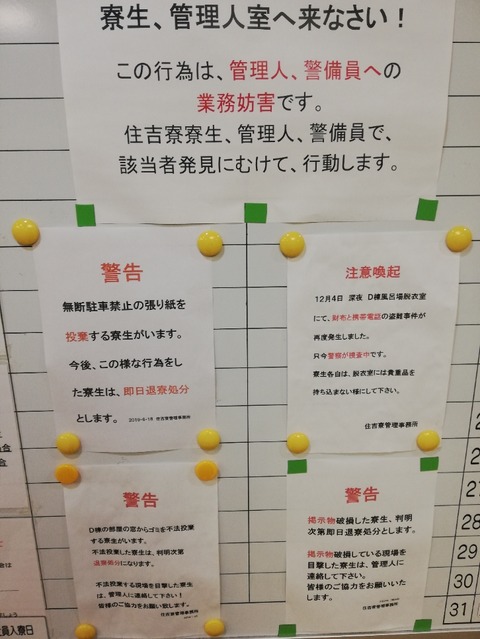 寮生、管理人室へ来なさい！
この行為は、管理人、警備員への
業務妨害です。
住吉寮寮生、管理人、警備員で、
該当者発見にむけて、行動します。
警告
無断駐車禁止の張り紙を
投棄する寮生がいます。
今後、この様な行為をし
た寮生は、即日退寮処分
とします。
住吉寮管理事務所
注意喚起
12月4日 深夜 D棟風呂場脱衣室
にて、財布と携帯電話の盗難事件が
再度発生しました。
只今警察が捜査中です。
寮生各自は、脱衣室には貴重品を
持ち込まない様にして下さい。
住吉寮管理事務所
警告
D棟の部屋の窓からゴミを不法投棄
する寮生がいます。
不法投棄した寮生は、判明次第
退寮処分になります。
不法投棄する現場を目撃した寮生
は、管理人に連絡して下さい！
皆様のご協力をお願い致します。
住吉寮管理事務所
警告
掲示物破損した寮生、判明
次第即日退寮処分とします。
掲示物破損している現場を
目撃した寮生は、管理人に
連絡して下さい。
皆様のご協力をお願いいた
します。
住吉寮管理事務所
28
29
30
31
員入寮日